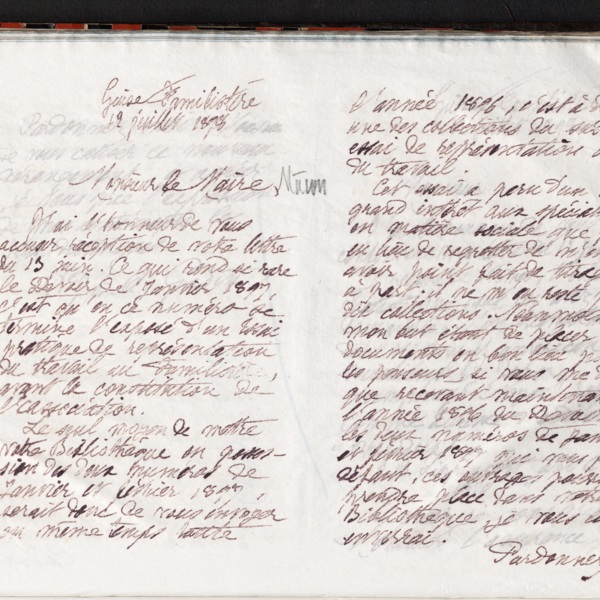 Guise Familistère
12 juillet 1898
Monsieur le Maire
J'ai l'honneur de vous
accuser réception de votre lettre
du 13 juin. Ce qui rend si rare
le Devoir de Janvier 1897,
c'est qu'en ce numéro se
termine l'exposé d'un essai
pratique de représentation
du travail au Familistère,
avant la constitution de
l'association.
Le seul moyen de mettre
votre Bibliothèque en posses-
sion des deux numéros de
Janvier et février 1897,
serait donc de vous envoyer
en même temps toute
l'année 1896, c'est à d
une des collections du su
essai de représentation d
du travail.
Cet essai a paru d'un
grand intérêt aux spécial
en matière sociale que
eu lieu de regretter de n'en
avoir point fait de tirage
à part. il ne m'en reste
dix collections. Néanmoins
mon but étant de placer
documents en bon lieu p
les penseurs si vous me d
que recevant maintenant
l'année 1896 du Devoir
les deux numéros de Jan
et février 1897 qui vous
défaut, ces ouvrages pour
prendre place dans votre
Bibliothèque, je vous les
enverrai.
Pardonnez